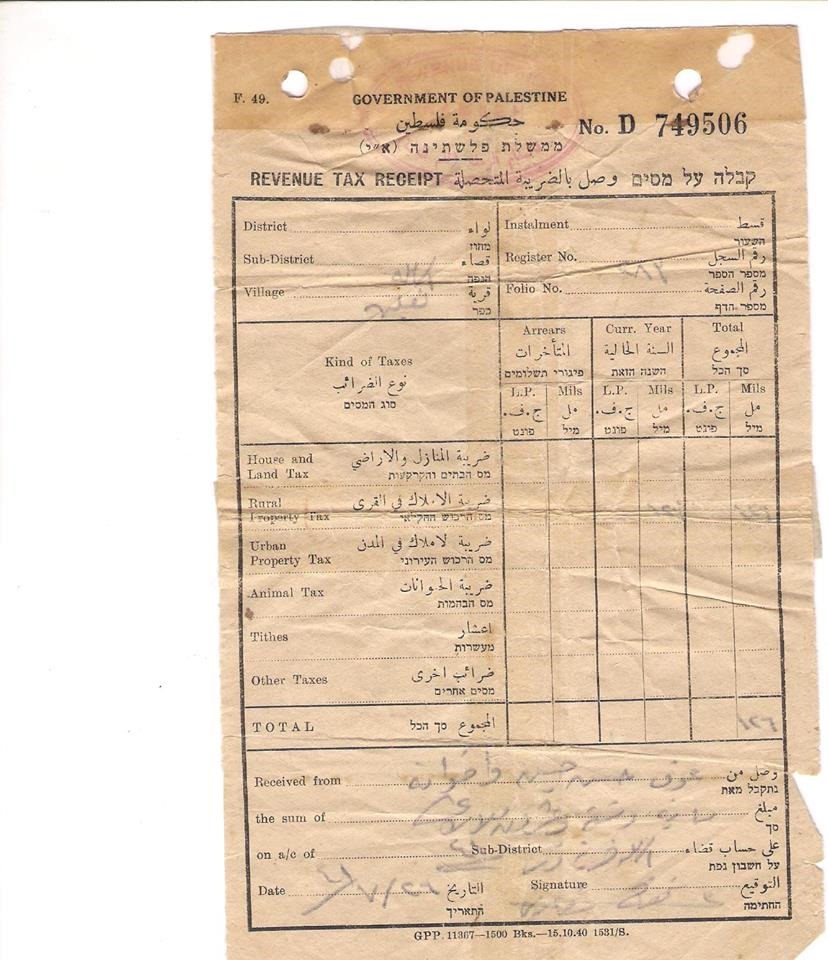 F. 49.
GOVERNMENT OF PALESTINE
حكومة فلسطين
No. D 749506
ממשלת פלשתינה (א״י)
REVENUE TAX RECEIPT وصل بالضريبة المتحصلة קבלה על מסים
District لواء
מחוז
Instalment قسط
השעור
Sub-District قضاء
הנפה
Register No. رقم السجل
מספר הספר
Village قرية
כפר
Folio No. رقم الصفحة
מספר הדף
Kind of Taxes
نوع الضرائب
סוג המסים
Arrears Curr. Year Total
المتأخرات السنة الحالية المجموع
פיגורי תשלומים השנה הזאת סך הכל
L.P. Mils L.P. Mils L.P. Mils
ج.ف. مل ج.ف. مل ج.ف. مل
פונט מיל פונט מיל פונט מיל
House and Land Tax ضريبة المنازل والاراضي
מס הבתים והקרקעות
Rural Property Tax ضريبة الاملاك في القرى
מס הרכוש החקלאי
Urban Property Tax ضريبة لاملاك في المدن
מס הרכוש העירוני
Animal Tax ضريبة الحيوانات
מס הבהמות
Tithes اعشار
מעשרות
Other Taxes ضرائب اخرى
מסים אחרים
TOTAL المجموع סך הכל
Received from وصل من
נתקבל מאת
the sum of مبلغ
סך
on a/c of Sub-District على حساب قضاء
על חשבון נפת
Date التاريخ
התאריך
Signature التوقيع
החתימה
GPP. 11367—1500 Bks.—15.10.40 1531/S.